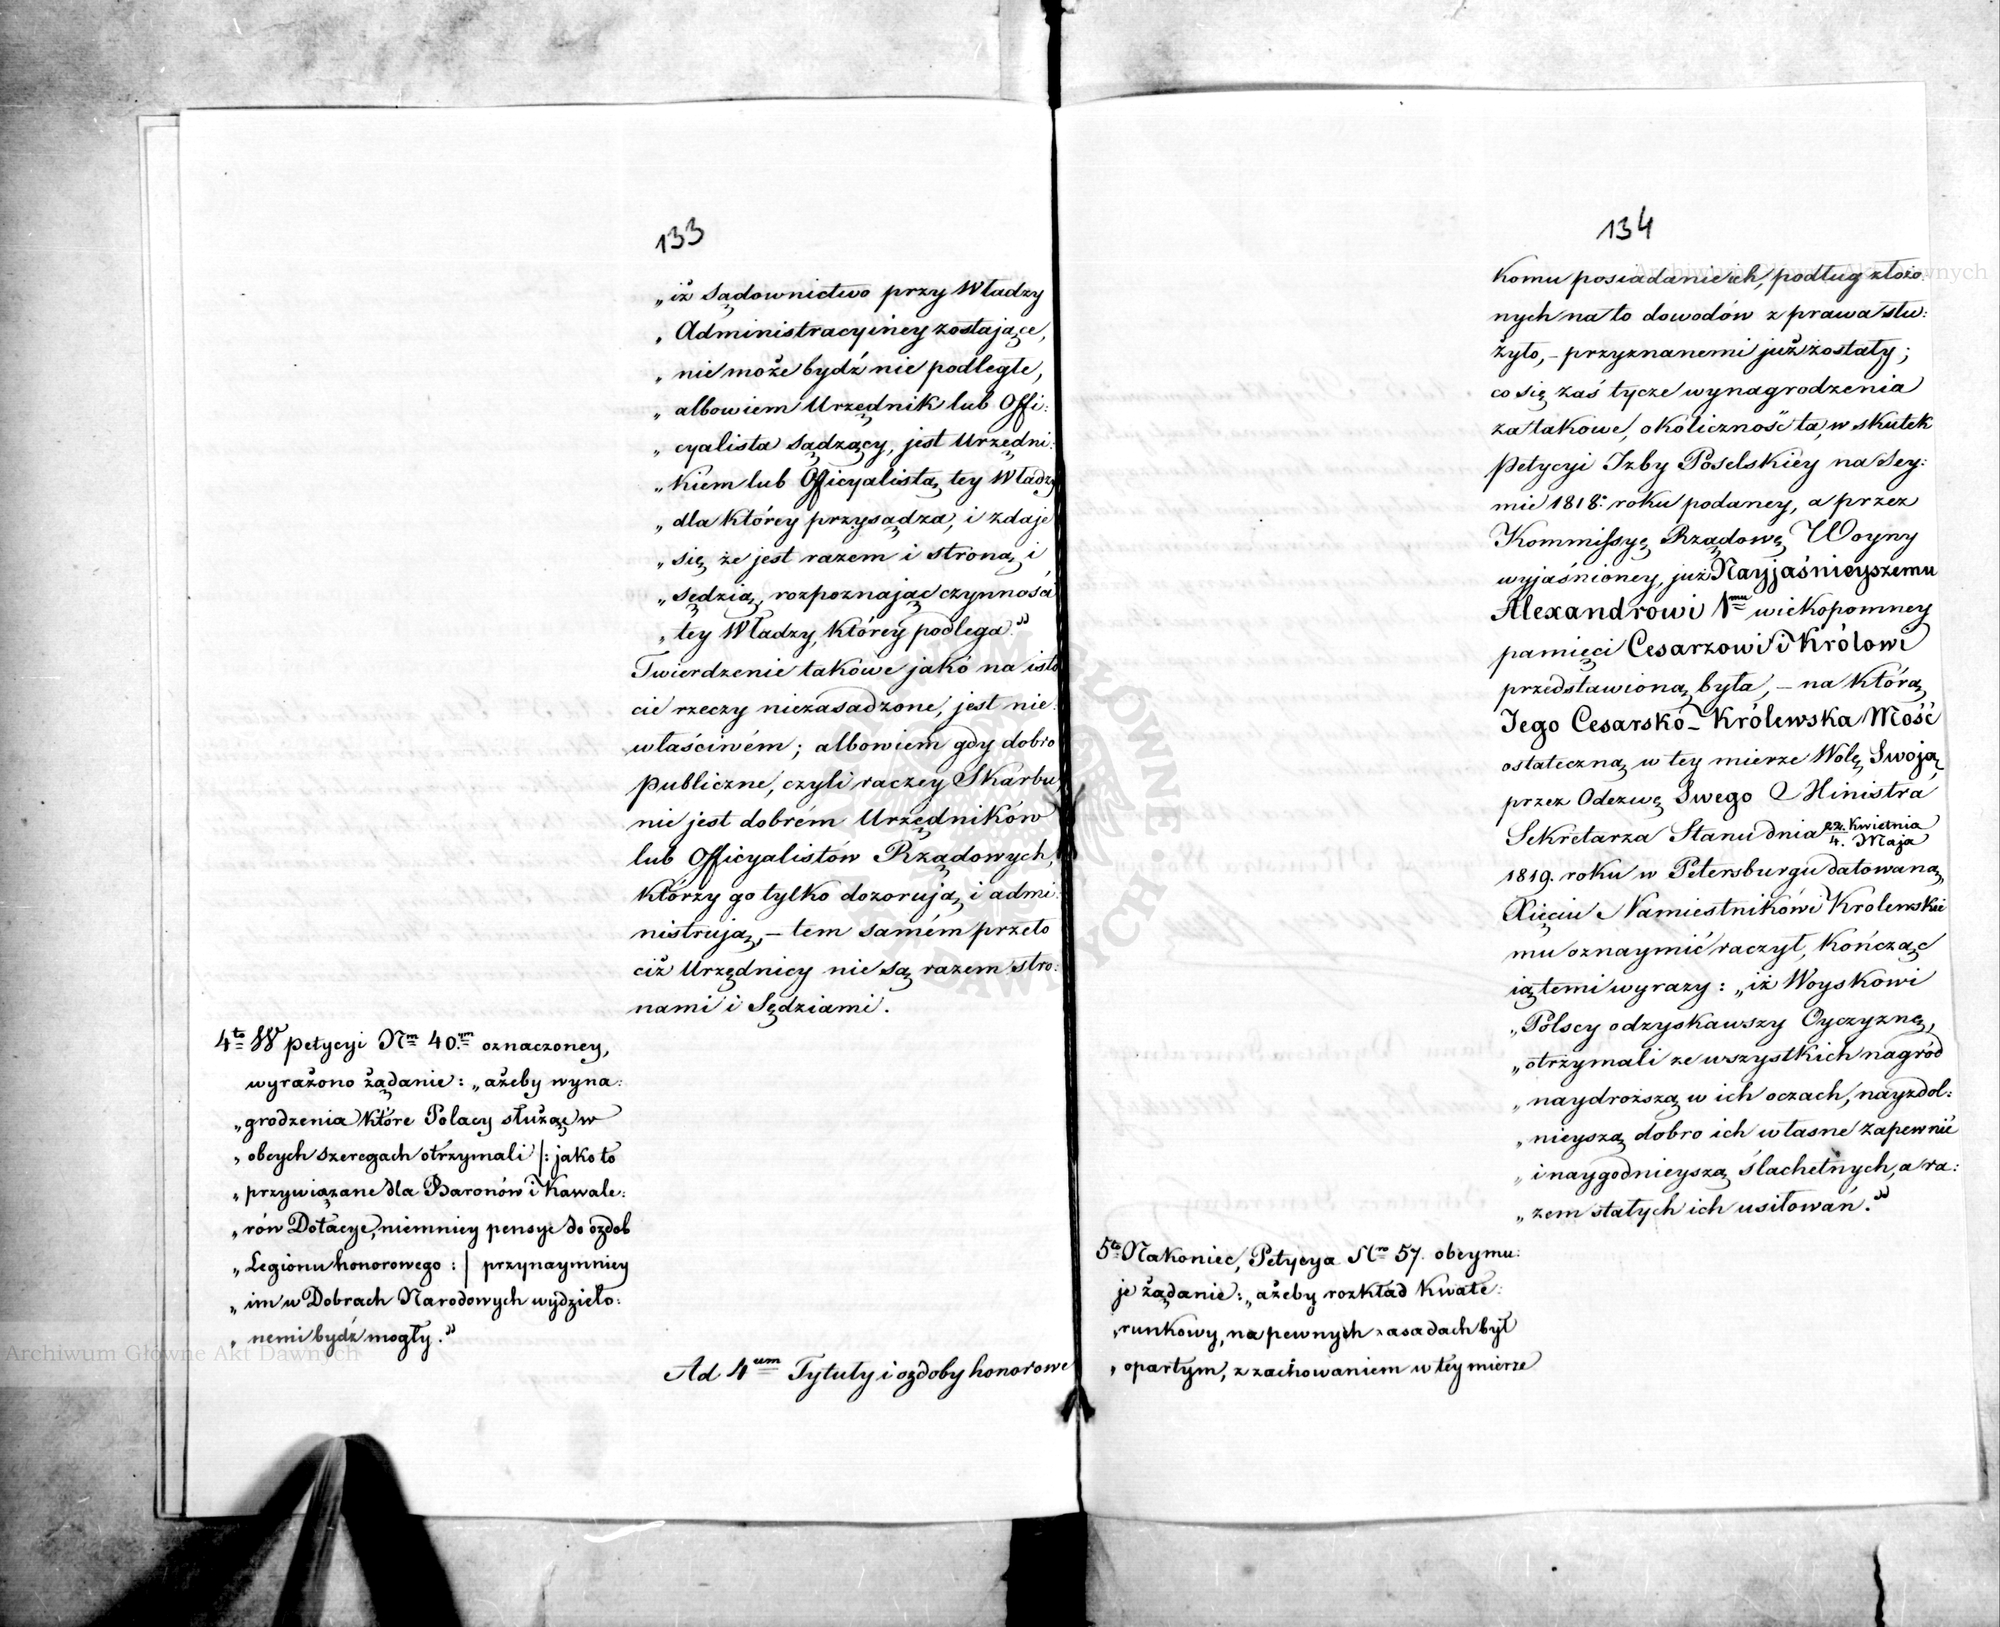 133
„iż Sądownictwo przy Władzy
„Administracyiney zostające,
„nie może bydź nie podległe,
„albowiem Urzędnik lub Offi:
„cyalista Sądzący, jest Urzędni:
„kiem lub Officyalistą tey Władzy
„dla którey przysądza, i zdaje
„się, że jest razem i stroną i
„Sędzią, rozpoznając czynności
„tey Władzy, którey podlega.”
Twierdzenie takowe jako na isto
cie rzeczy niezasadzone, jest nie:
właściwém; albowiem gdy dobro
publiczne, czyli raczey Skarbu,
nie jest dobrém Urzędników
lub Officyalistów Rządowych,
którzy go tylko dozorują, i admi:
nistrują, – tem samém przeto
ciż Urzędnicy nie są razem stro:
nami i Sędziami.
4to W petycyi Nrm 40.ym oznaczoney,
wyrażono żądanie: „ażeby wyna:
„grodzenia które Polacy służąc w
„obcych szeregach otrzymali |: jako to
„przywiązane dla Baronów i Kawale:
„rów Dotacye, niemniey pensye do ozdob
„Legionu honorowego :| przynaymniey
„im w Dobrach Narodowych wydzielo:
„nemi bydź mogły.”
Ad 4um Tytuły i ozdoby honorowe
134
komu posiadanie ich, podług złożo:
nych na to dowodów z prawa słu:
żyło, – przyznanemi już zostały;
co się zaś tycze wynagrodzenia
za takowe, okoliczność ta, w skutek
petycyi Izby Poselskiey na Sey:
mie 1818. roku podaney, a przez
Kommissyę Rządową Woyny
wyjaśnioney, już Nayjaśnieyszemu
Alexandrowi 1mu wiekopomney
pamięci Cesarzowi i Królowi
przedstawioną była, – na którą
Jego Cesarsko-Królewska Mość
ostateczną w tey mierze Wolę Swoją,
przez Odezwę Swego Ministra
Sekretarza Stanu dnia 22. Kwietnia
4. Maja
1819. roku w Petersburgu datowaną,
Xięciu Namiestnikowi Królewskie
mu oznaymić raczył, kończąc
ią temi wyrazy: „iż Woyskowi
„Polscy odzyskawszy Oyczyznę,
„otrzymali ze wszystkich nagród
„naydroższą w ich oczach, nayzdol:
„nieyszą dobro ich własne zapewnić
„i naygodnieyszą ślachetnych, a ra:
„zem stałych ich usiłowań.”
5to Nakoniec, Petycya Nro 57. obeymu:
je żądanie: „ażeby rozkład kwate:
„runkowy, na pewnych zasadach był
„opartym, z zachowaniem w tey mierze
Archiwum Główne Akt Dawnych